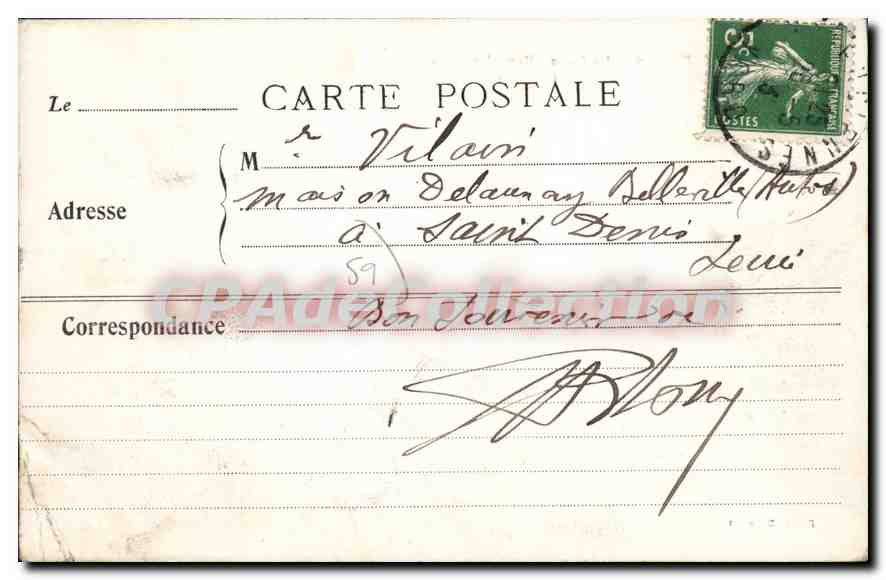 CARTE POSTALE
Le
5c
REPUBLIQUE FRANÇAISE
POSTES
Mr Vilain
Maison Delaunay Belleville (Autos)
Adresse
à Saint Denis
Seine
59
CPAdeCollection.com
Correspondance
Bon Souvenir de